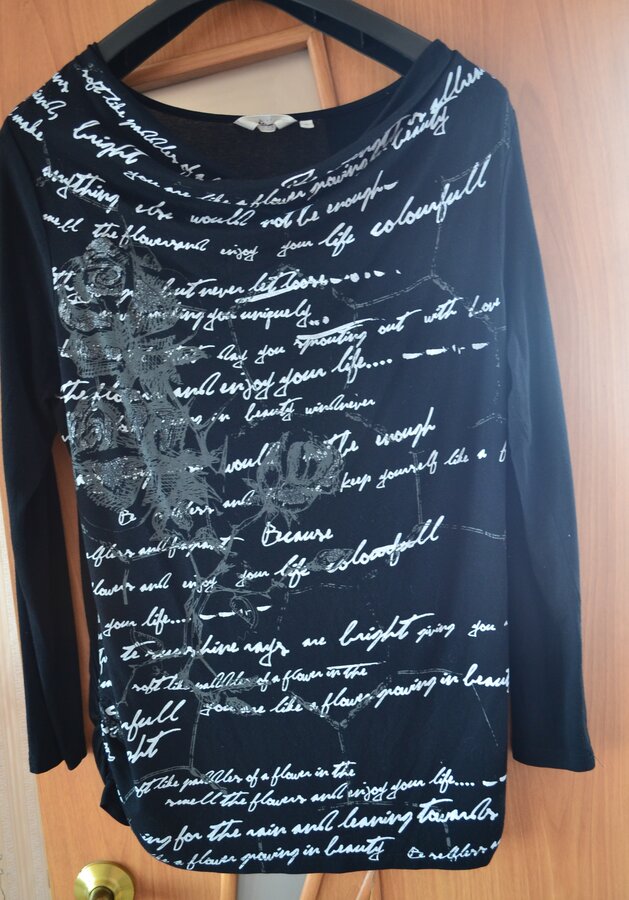 soft like paddles of a
make bright you are like a flower growing in beauty
everything else would not be enough
smell the flowers and enjoy your life colourfull
but never let loose
you uniquely...
day you sprouting out with love
the flowers and enjoy your life....
in beauty windnever
would be enough
keep yourself like a f
Be selfless and
Because
selfless and fragrant
flowers and enjoy your life colourfull
your life....
te sunshine rays are bright giving you
soft like paddles of a flower in the
urfull you are like a flower growing in beaut
ght
oft like paddles of a flower in the
smell the flowers and enjoy your life....
ing for the rain and leaning towards
a flower growing in beauty Be selfless a